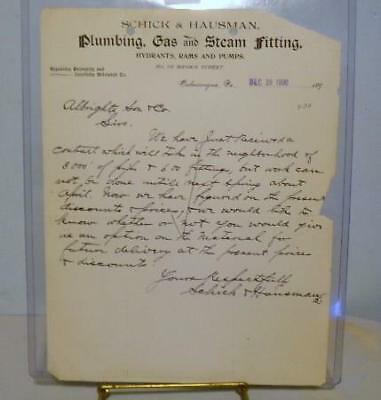 SCHICK & HAUSMAN,
Plumbing, Gas and Steam Fitting,
HYDRANTS, RAMS AND PUMPS.
STREET
Repairing Promptly and
Carefully Attended To.
Pa., DEC 28 1900 189
Albright, Son & Co
Sirs.
We have Just Received a
contract which will take in the neighborhood of
8000' of pipe & 600 fittings, but work can
not be done untill next Spring about
April. Now we have figured on the present
discounts & prices, & we would like to
know whether or not You would give
us an option on the Material for
future delivery at the present prices
& discounts
Yours Respectfully
Schick & Hausman